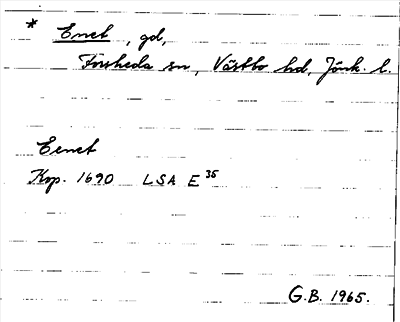 * Enet, gd,
Forsheda sn, Västbo hd, Jönk. l.
Eenet
Kop. 1690 LSA E 35
G.B. 1965.